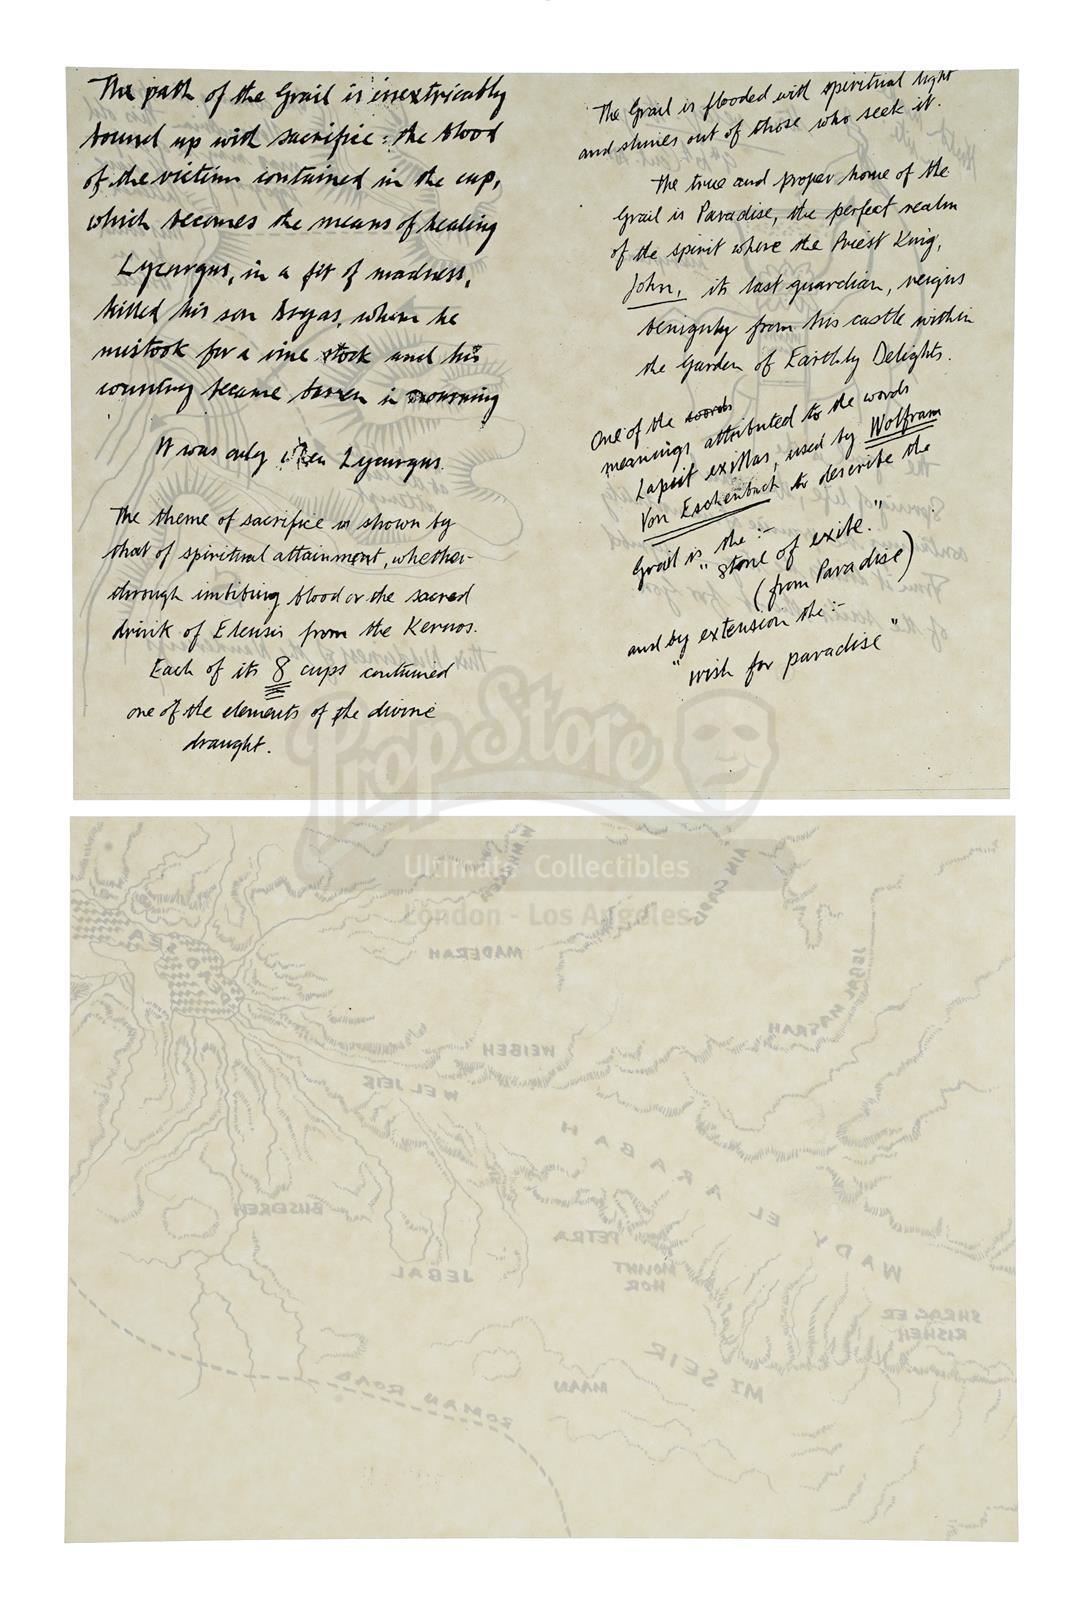 The path of the Grail is inextricably
bound up with sacrifice: the blood
of the victim contained in the cup,
which becomes the means of healing
Lycurgus, in a fit of madness,
killed his son Dryas, whom he
mistook for a vine stock and his
country became barren in mourning
It was only when Lycurgus.
The theme of sacrifice is shown by
that of spiritual attainment, whether
through imbibing blood or the sacred
drink of Eleusis from the Kernos.
Each of its 8 cups contained
one of the elements of the divine
draught.
The Grail is flooded with spiritual light
and shines out of those who seek it.
The true and proper home of the
Grail is Paradise, the perfect realm
of the spirit where the Priest King,
John, its last guardian, reigns
benignly from his castle within
the Garden of Earthly Delights.
One of the words
meanings attributed to the words
Lapsit exillas, used by Wolfram
Von Eschenbach to describe the
Grail is the :-
"stone of exile."
(from Paradise)
and by extension the :-
"wish for paradise"
PropStore
Ultimate Collectibles
London - Los Angeles
DEAD SEA
MADERAH
JEBEL HASRAH
WEIBEH
W EL JEIB
WADY EL ARABAH
BUSEIREH
PETRA
JEBAL
MOUNT
HOR
SHERAG ER
RISHEH
MT SEIR
MAAN
ROMAN ROAD